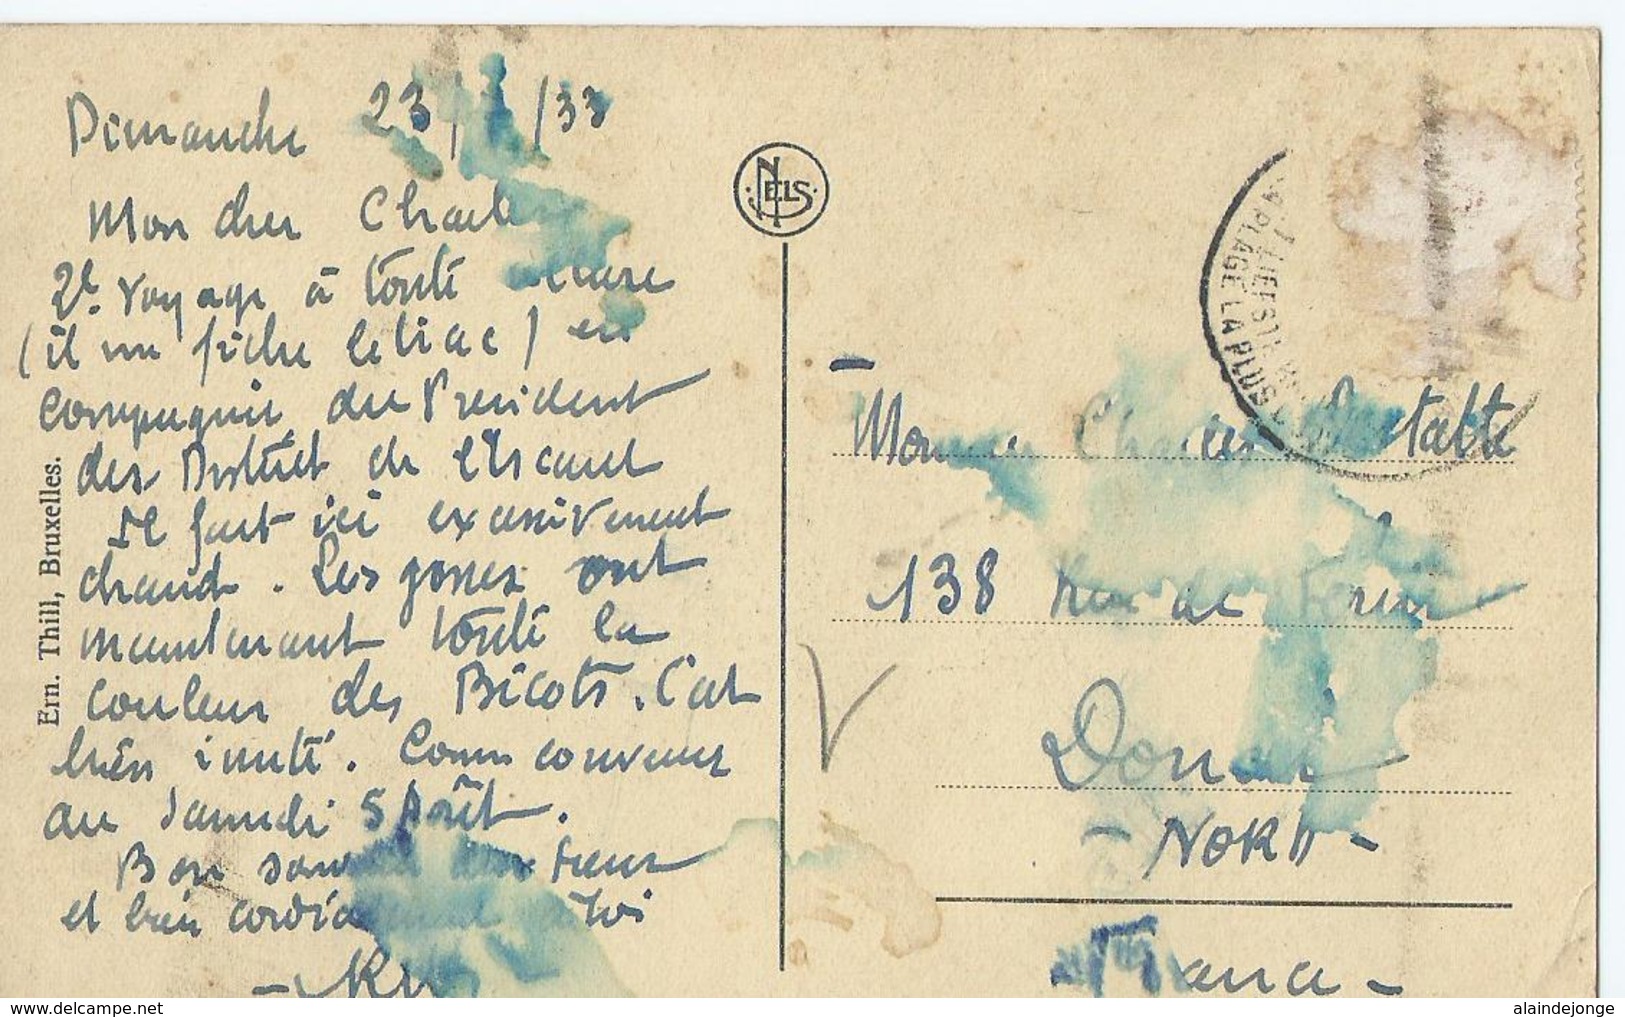 Dimanche 23/ /33
Mon cher
2e Voyage à toute
(il me fiche le trac) en
Compagnie du Président
des District de l'Escaut
Il fait ici excessivement
chaud. Les gosses ont
maintenant toute la
couleur des Bicots. C'est
bien Comme convenu
au Samedi 5 Août.
Bon
et bien cordialement à toi
NELS
Ern. Thill, Bruxelles.
PLAGE LA PLUS
Monsieur Charles
138 Rue de
Douai
- NORD -
- France -
alaindejonge